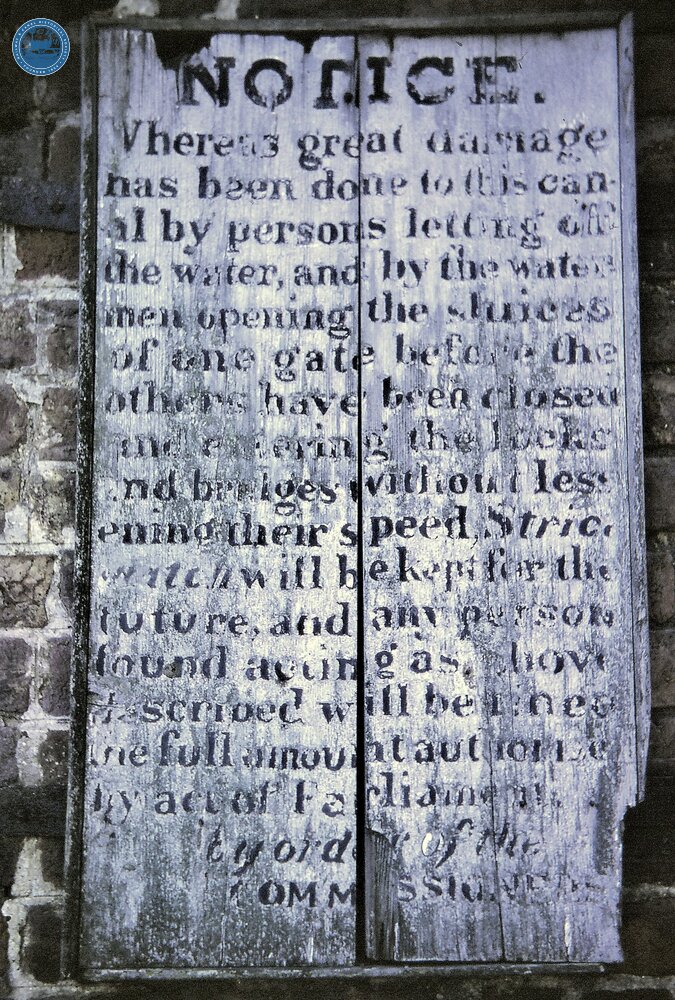 NOTICE.
Whereas great damage
has been done to this can-
al by persons letting off
the water, and by the water-
men opening the sluices
of one gate before the
others have been closed
and entering the locks
and bridges without less-
ening their speed, Strict
watch will be kept for the
future, and any person
found acting as above
described will be fined
the full amount authorised
by act of Parliament.
by order of the
COMMISSIONERS